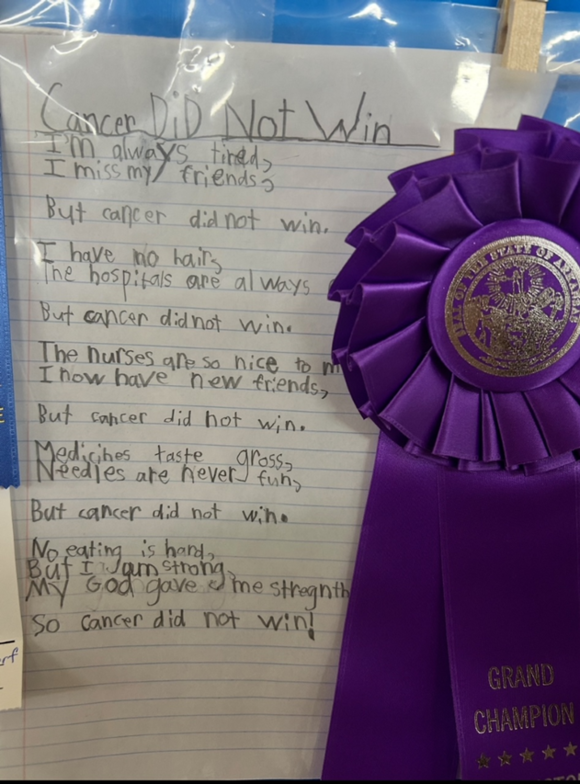 Cancer DiD Not Win
I'm always tired,
I miss my friends,
But cancer did not win.
I have no hair,
The hospitals are always
But cancer did not win.
The nurses are so nice to m
I now have new friends,
But cancer did not win.
Medicines taste gross,
Needles are never fun,
But cancer did not win.
No eating is hard,
But I am strong,
My God gave me stregnth
So cancer did not win!
STATE OF
GRAND
CHAMPION